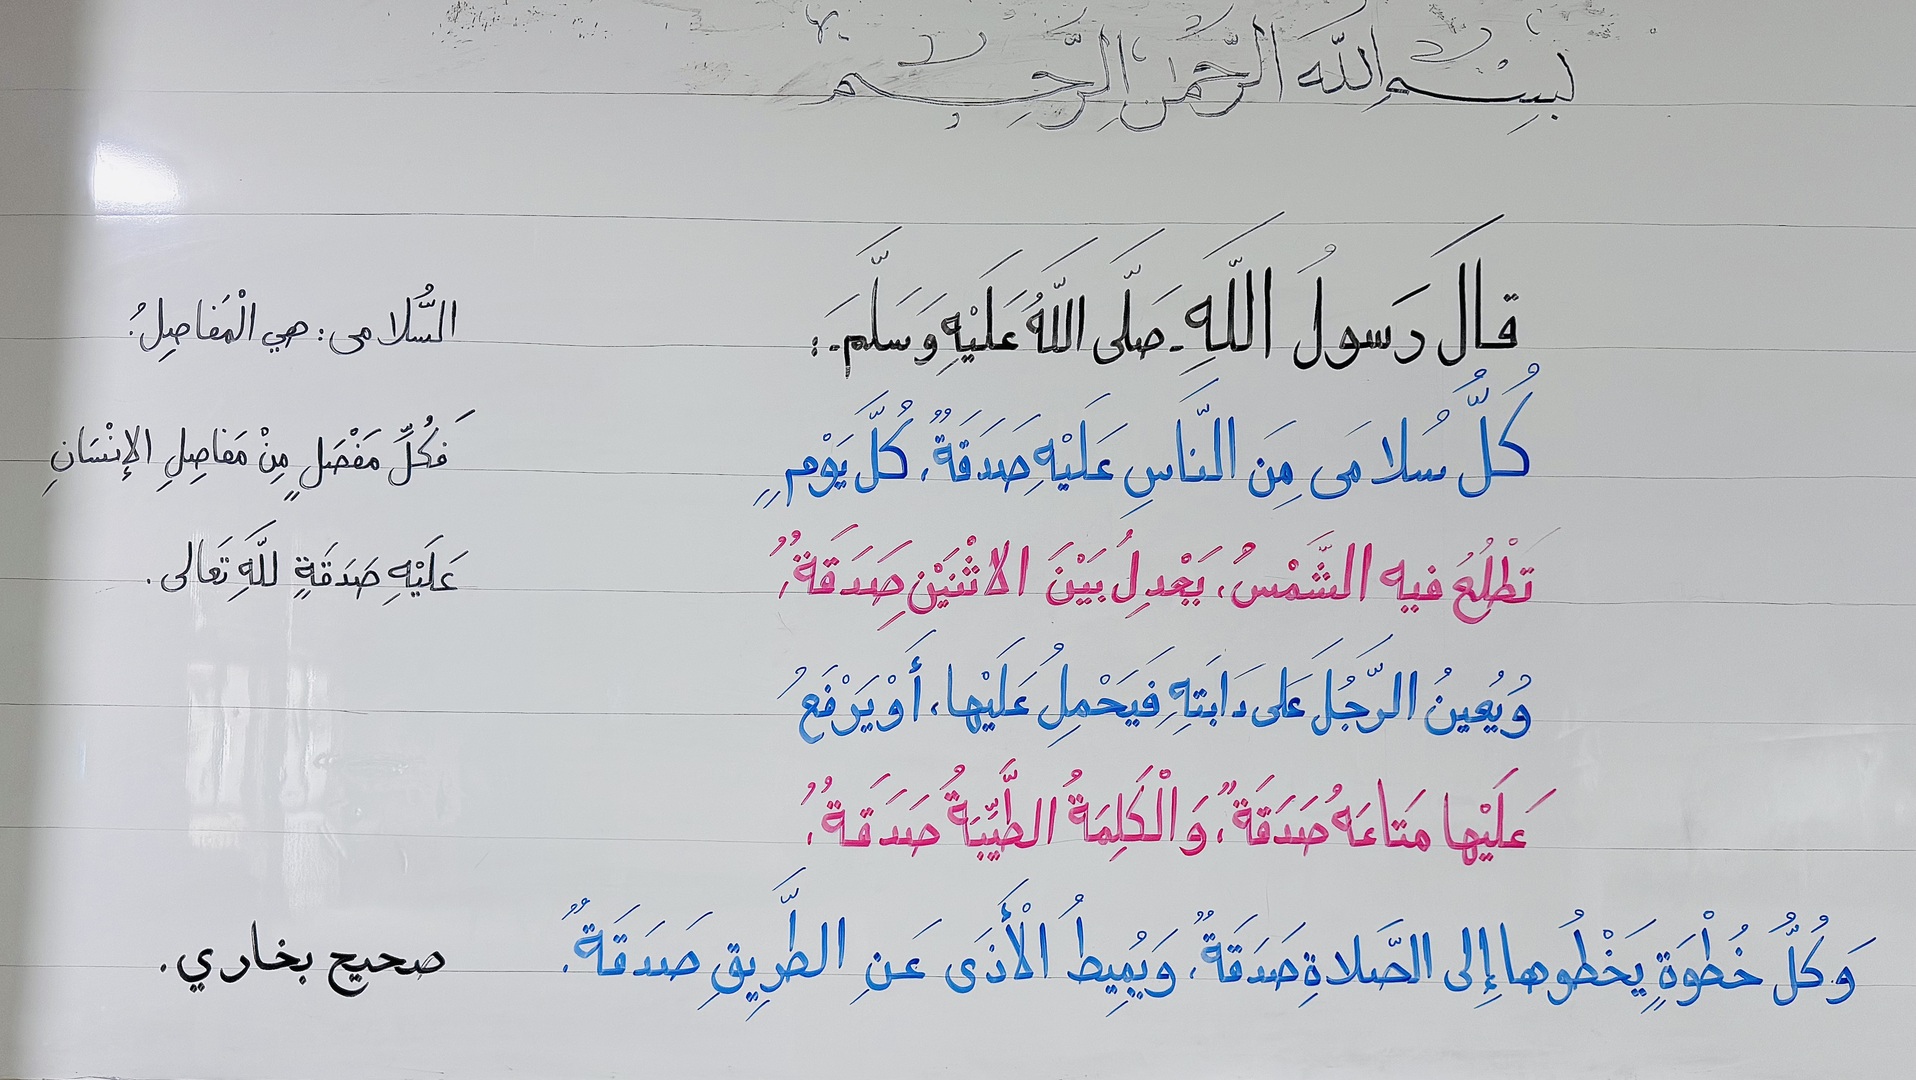 بِسْمِ اللَّهِ الرَّحْمٰنِ الرَّحِيمِ
قالَ رَسولُ اللَّهِ ـ صَلَّى اللَّهُ عَلَيْهِ وَسَلَّمَ ـ:
كُلُّ سُلامَى مِنَ النَّاسِ عَلَيْهِ صَدَقَةٌ، كُلَّ يَوْمٍ
تَطْلُعُ فيه الشَّمْسُ، يَعْدِلُ بَيْنَ الاثْنَيْنِ صَدَقَةٌ،
وَيُعِينُ الرَّجُلَ عَلى دَابَتِهِ فَيَحْمِلُ عَلَيْها، أَوْ يَرْفَعُ
عَلَيْها مَتاعَهُ صَدَقَةٌ، وَالْكَلِمَةُ الطَّيِّبَةُ صَدَقَةٌ،
وَكُلُّ خُطْوَةٍ يَخْطُوها إِلى الصَّلاةِ صَدَقَةٌ، وَيُمِيطُ الْأَذَى عَنِ الطَّرِيقِ صَدَقَةٌ.
السُّلامى: هي الْمَفاصِلُ:
فَكُلِّ مَفْصَلٍ مِنْ مَفاصِلِ الإِنْسَانِ
عَلَيْهِ صَدَقَةٍ لِلَّهِ تَعالى.
صحيح بخاري.